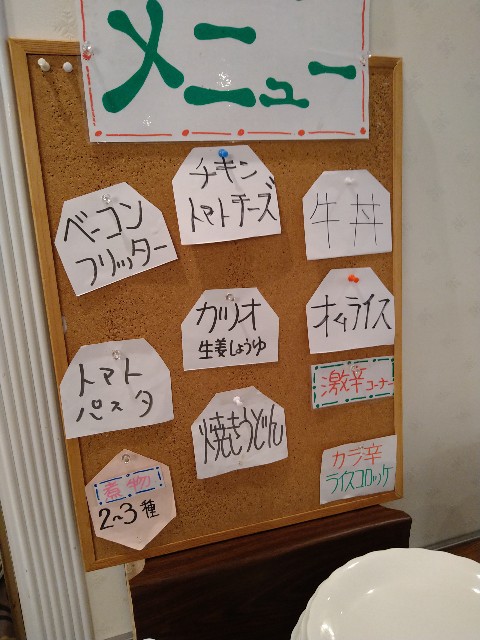 メニュー
チキン
トマトチーズ
ベーコン
フリッター
牛丼
カツオ
生姜しょうゆ
オムライス
トマト
パスタ
焼きうどん
激辛コーナー
カラ辛
ライスコロッケ
煮物
2~3種